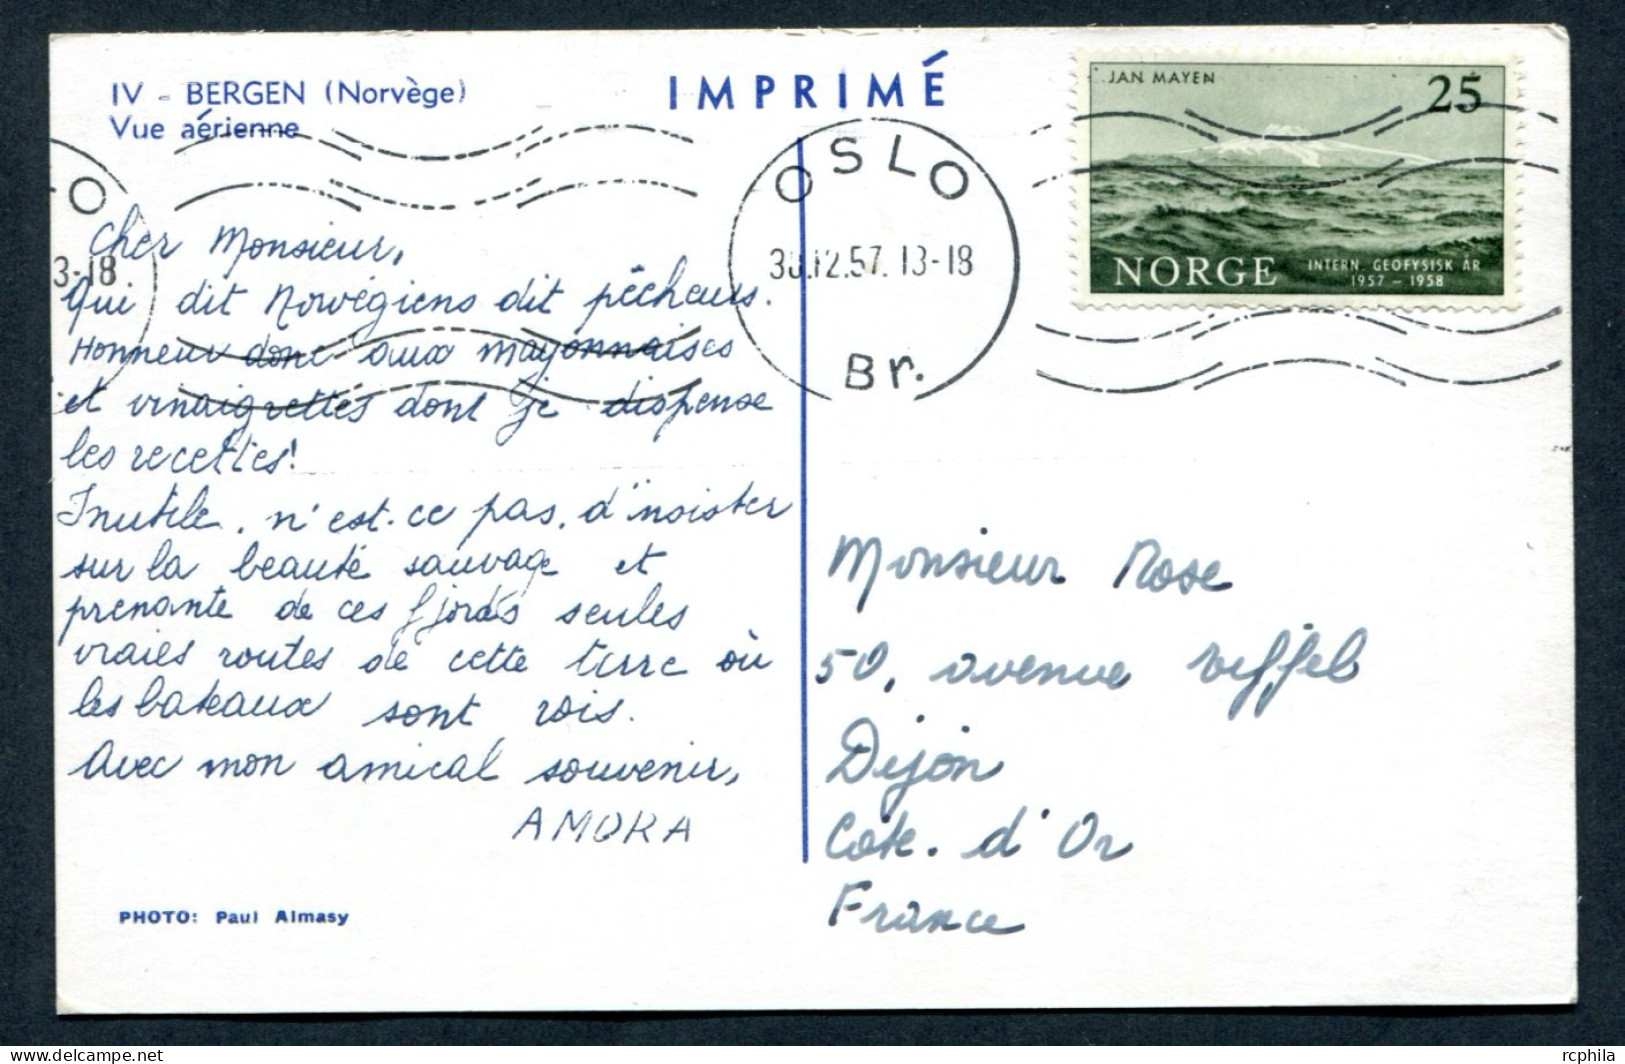 IV - BERGEN (Norvège)
Vue aérienne
IMPRIMÉ
JAN MAYEN 25
NORGE INTERN. GEOFYSISK ÅR
1957 - 1958
OSLO
30.12.57. 13-18
Br.
O
3-18
Cher Monsieur,
Qui dit Norvégiens dit pêcheurs.
Honneur donc aux mayonnaises
et vinaigrettes dont je dispense
les recettes!
Inutile, n'est-ce pas, d'insister
sur la beauté sauvage et
prenante de ces fjords seules
vraies routes de cette terre où
les bateaux sont rois.
Avec mon amical souvenir,
AMORA
PHOTO: Paul Almasy
Monsieur Rose
50, avenue Eiffel
Dijon
Cote. d'Or
France
rcphila